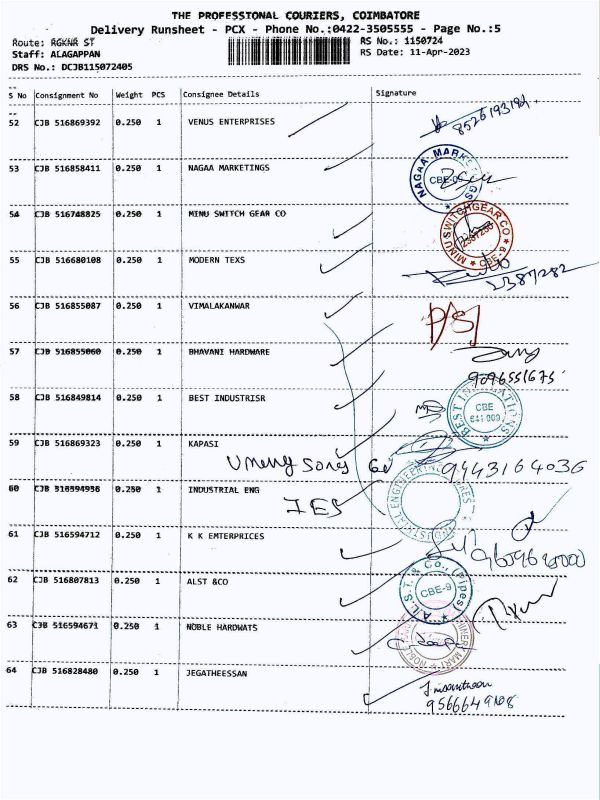 THE PROFESSTONAL COURIERS, COIMBATORE
Delivery Runsheet - PCX - Phone No.:0422-3505555 - Page No.:5
Route: RGKNR ST
RS No.: 1150724
Staff: ALAGAPPAN
RS Date: 11-Apr-2023
DRS No.: DCJB115072405
S No Consignment No Weight PCS Consignee Details Signature
52 CJB 516869392 0.250 1 VENUS ENTERPRISES
8526193184.
53 CJB 516858411 0.250 1 NAGAA MARKETINGS
NAGAA MARKETINGS
54 CJB 516748825 0.250 1 MINU SWITCH GEAR CO
MINU SWITCHGEAR CO CBE-6
55 CJB 516680108 0.250 1 MODERN TEXS
2387282
56 CJB 516855087 0.250 1 VIMALAKANWAR
P/S/
57 CJB 516855060 0.250 1 BHAVANI HARDWARE
9096551675
58 CJB 516849814 0.250 1 BEST INDUSTRISR
BEST CBE 641 009
59 CJB 516869323 0.250 1 KAPASI
9443164036
60 CJB 516594956 0.250 1 INDUSTRIAL ENG
IES
INDUSTRIAL ENGINEERING
61 CJB 516594712 0.250 1 K K EMTERPRICES
62 CJB 516807813 0.250 1 ALST &CO
A.L.S.T. & Co., (Pipes) CBE-9
63 CJB 516594671 0.250 1 NOBLE HARDWATS
64 CJB 516828480 0.250 1 JEGATHEESSAN